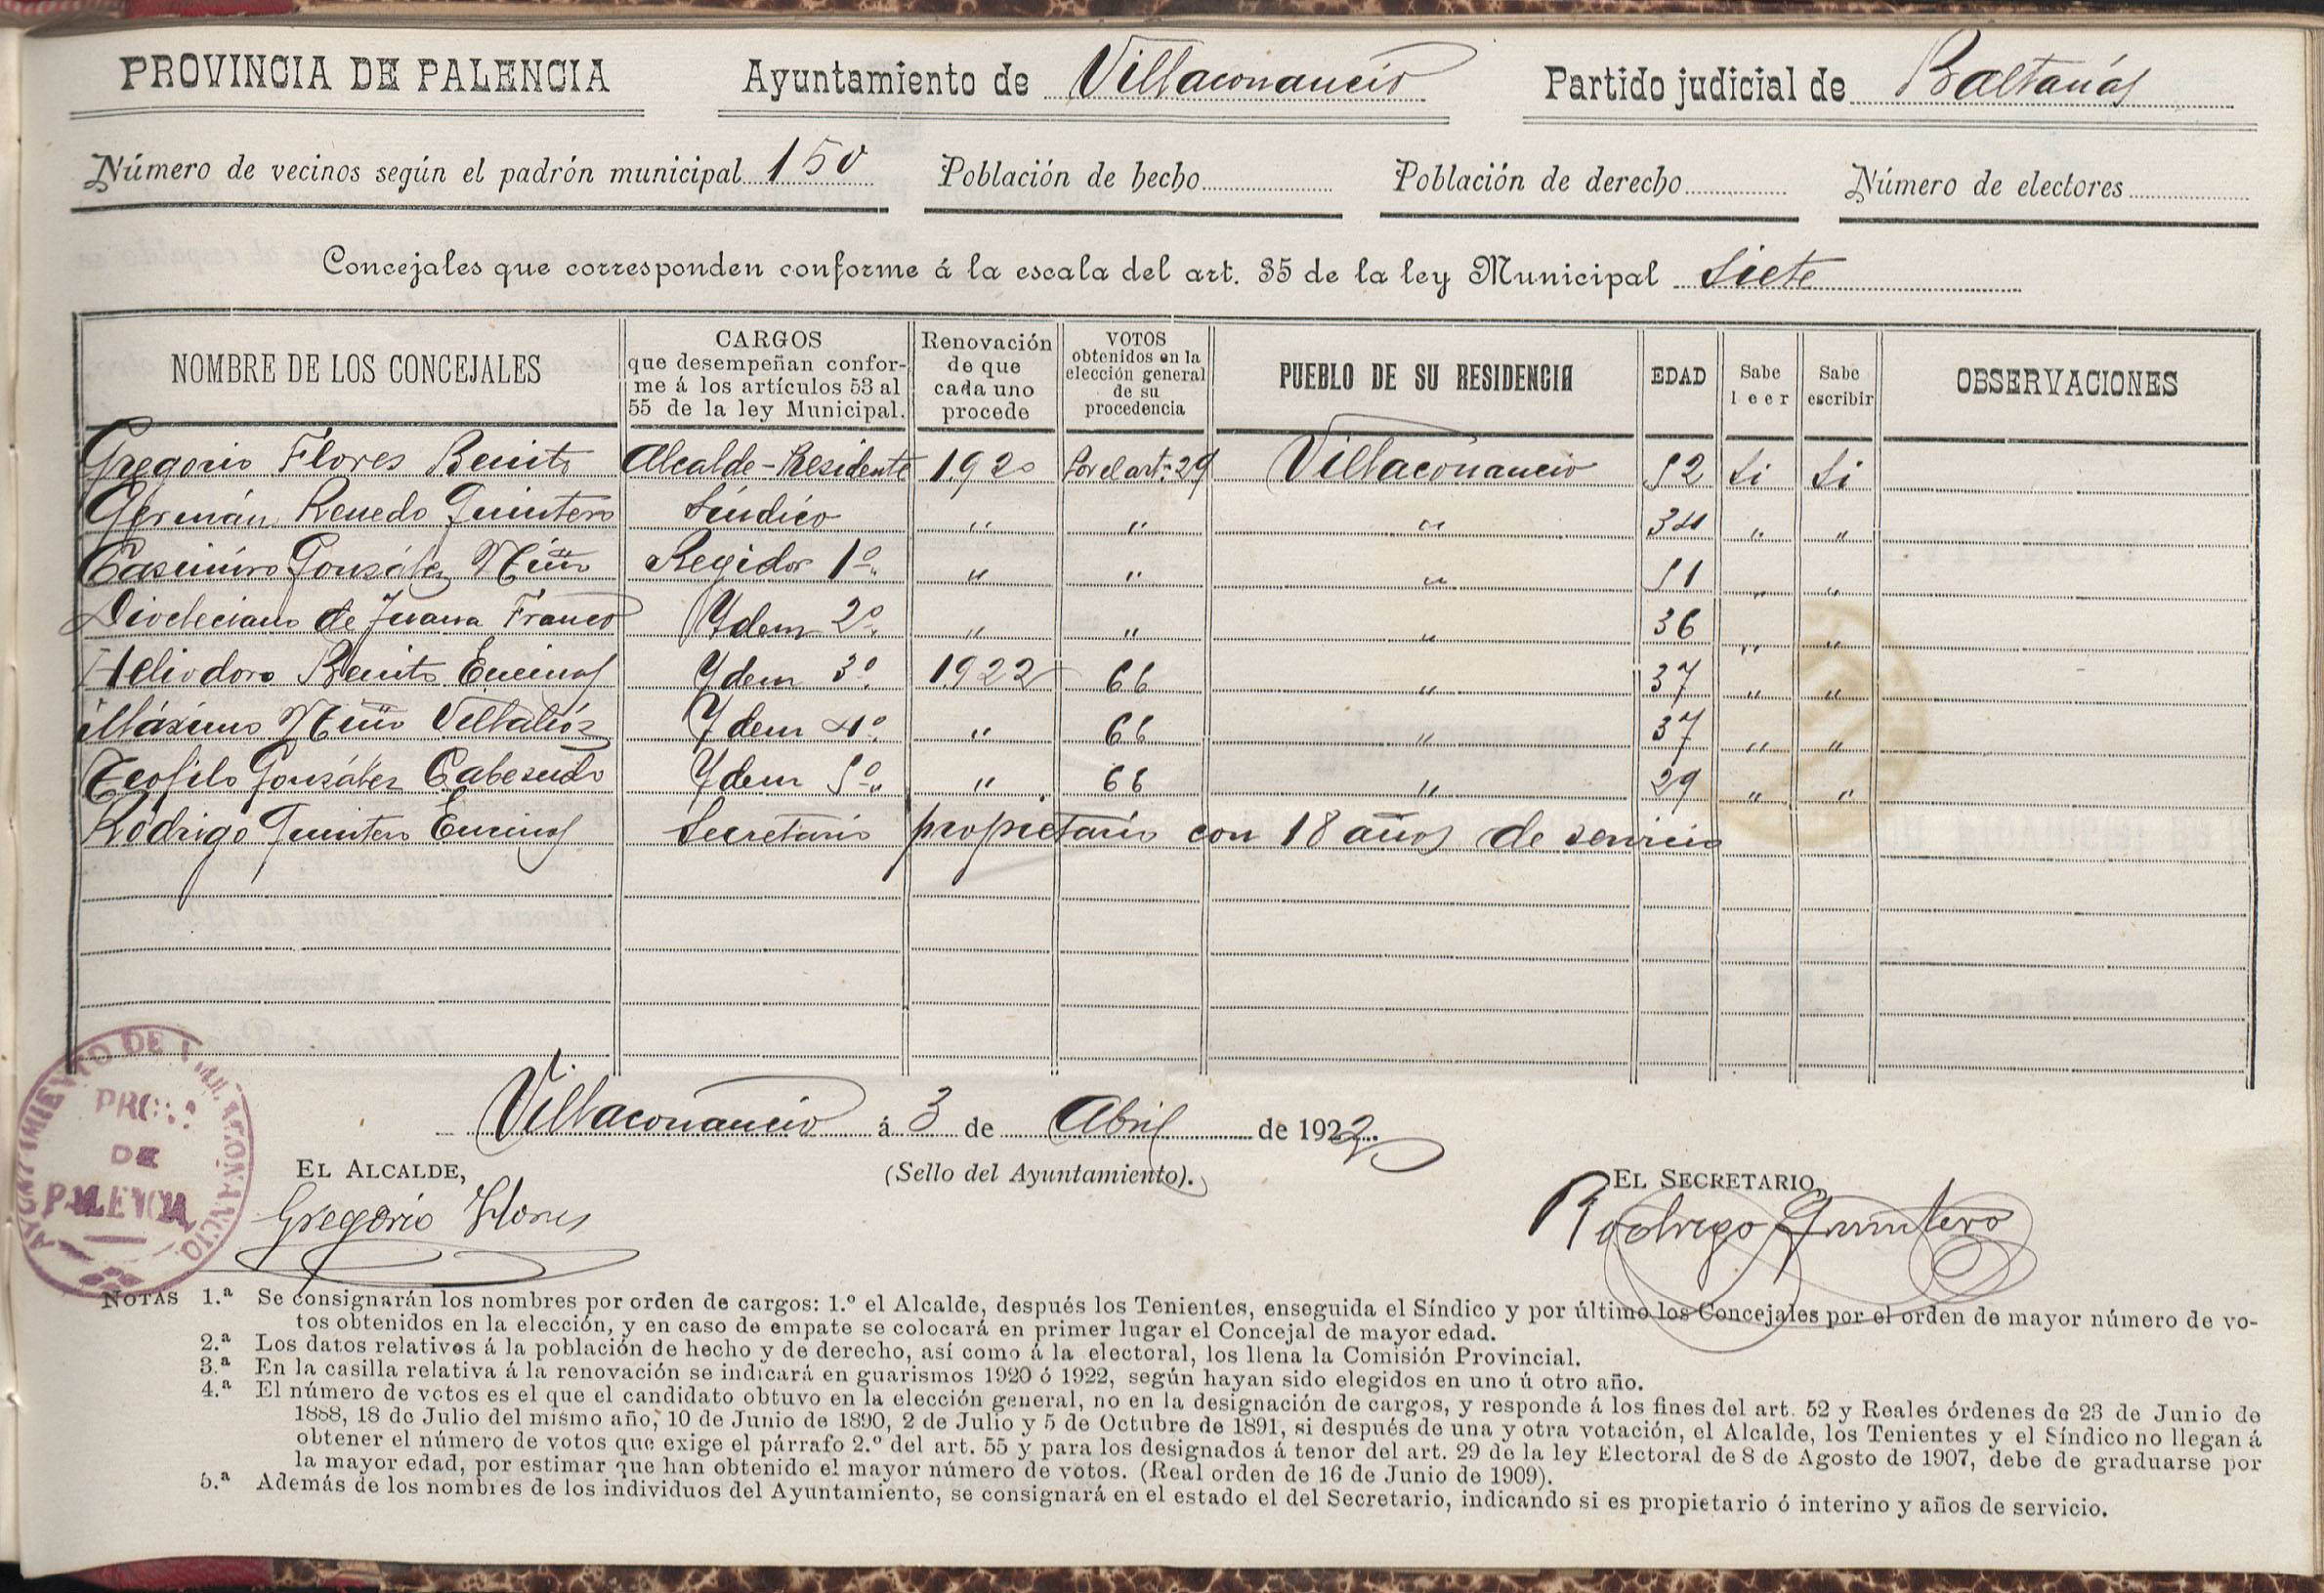 PROVINCIA DE PALENCIA Ayuntamiento de Villaconancio Partido judicial de Baltanás
Número de vecinos según el padrón municipal 150 Población de hecho Población de derecho Número de electores
Concejales que corresponden conforme á la escala del art. 35 de la ley Municipal Siete
NOMBRE DE LOS CONCEJALES
CARGOS
que desempeñan confor-
me á los artículos 53 al
55 de la ley Municipal.
Renovación
de que
cada uno
procede
VOTOS
obtenidos en la
elección general
de su
procedencia
PUEBLO DE SU RESIDENCIA
EDAD
Sabe
leer
Sabe
escribir
OBSERVACIONES
Gregorio Flores Benito Alcalde-Residente 1920 Por el art.º 29 Villaconancio 52 Si Si
Germán Renedo Quintero Síndico " " " 34 " "
Casimiro González Niño Regidor 1º " " " 51 " "
Diocleciano de Juana Franco Ydem 2º " " " 36 " "
Heliodoro Benito Encinas Ydem 3º 1922 66 " 37 " "
Máximo Niño Villalióz Ydem 4º " 66 " 37 " "
Teofilo González Cabezudo Ydem 5º " 66 " 29 " "
Rodrigo Quintero Encinas Secretario propietario con 18 años de servicio
Villaconancio á 3 de Abril de 1922.
EL ALCALDE, (Sello del Ayuntamiento). EL SECRETARIO,
Gregorio Flores Rodrigo Quintero
AYUNTAMIENTO DE VILLACONANCIO
PROV.ª
DE
PALENCIA
NOTAS 1.ª Se consignarán los nombres por orden de cargos: 1.º el Alcalde, después los Tenientes, enseguida el Síndico y por último los Concejales por el orden de mayor número de vo-
tos obtenidos en la elección, y en caso de empate se colocará en primer lugar el Concejal de mayor edad.
2.ª Los datos relativos á la población de hecho y de derecho, así como á la electoral, los llena la Comisión Provincial.
3.ª En la casilla relativa á la renovación se indicará en guarismos 1920 ó 1922, según hayan sido elegidos en uno ú otro año.
4.ª El número de votos es el que el candidato obtuvo en la elección general, no en la designación de cargos, y responde á los fines del art. 52 y Reales órdenes de 23 de Junio de
1888, 18 de Julio del mismo año, 10 de Junio de 1890, 2 de Julio y 5 de Octubre de 1891, si después de una y otra votación, el Alcalde, los Tenientes y el Síndico no llegan á
obtener el número de votos que exige el párrafo 2.º del art. 55 y para los designados á tenor del art. 29 de la ley Electoral de 8 de Agosto de 1907, debe de graduarse por
la mayor edad, por estimar que han obtenido el mayor número de votos. (Real orden de 16 de Junio de 1909).
5.ª Además de los nombres de los individuos del Ayuntamiento, se consignará en el estado el del Secretario, indicando si es propietario ó interino y años de servicio.